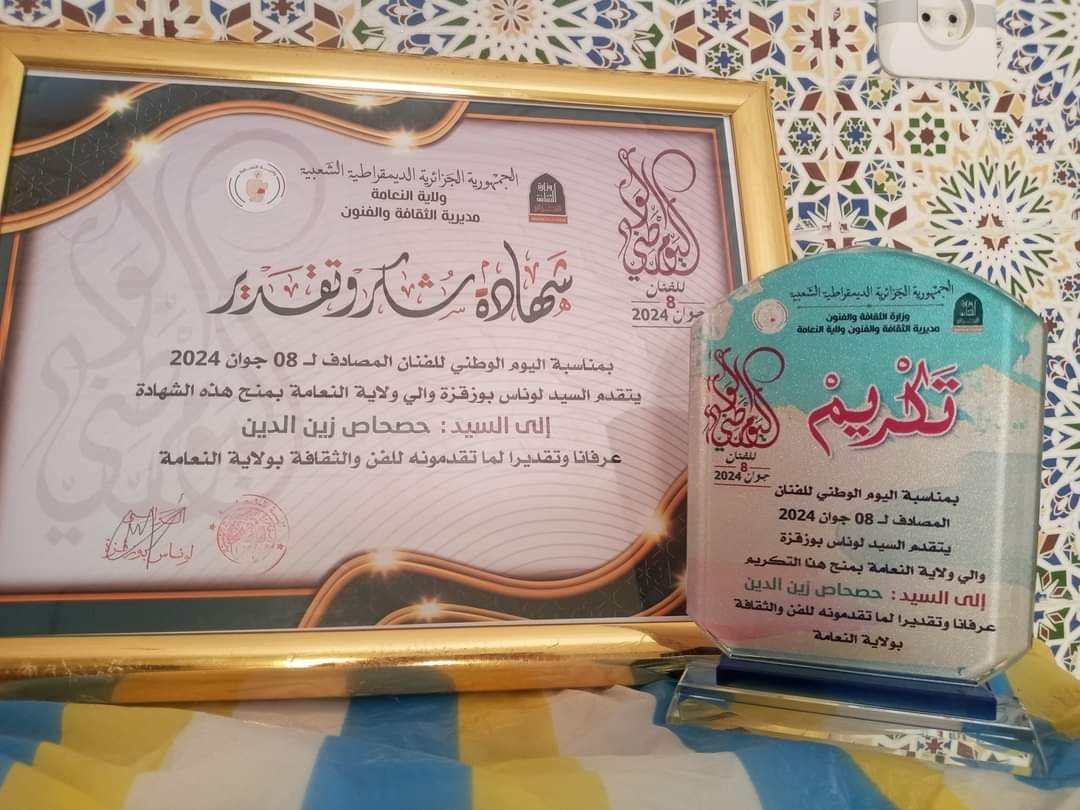 الجمهورية الجزائرية الديمقراطية الشعبية
ولاية النعامة
مديرية الثقافة والفنون
اليوم الوطني
للفنان
8
جوان 2024
شهادة شكر وتقدير
بمناسبة اليوم الوطني للفنان المصادف لـ 08 جوان 2024
يتقدم السيد لوناس بوزقزة والي ولاية النعامة بمنح هذه الشهادة
إلى السيد : حصحاص زين الدين
عرفانا وتقديرا لما تقدمونه للفن والثقافة بولاية النعامة
لوناس بوزقزة
الجمهورية الجزائرية الديمقراطية الشعبية
وزارة الثقافة والفنون
مديرية الثقافة والفنون ولاية النعامة
اليوم الوطني
للفنان
8
جوان 2024
تكريم
بمناسبة اليوم الوطني للفنان
المصادف لـ 08 جوان 2024
يتقدم السيد لوناس بوزقزة
والي ولاية النعامة بمنح هذا التكريم
إلى السيد : حصحاص زين الدين
عرفانا وتقديرا لما تقدمونه للفن والثقافة
بولاية النعامة